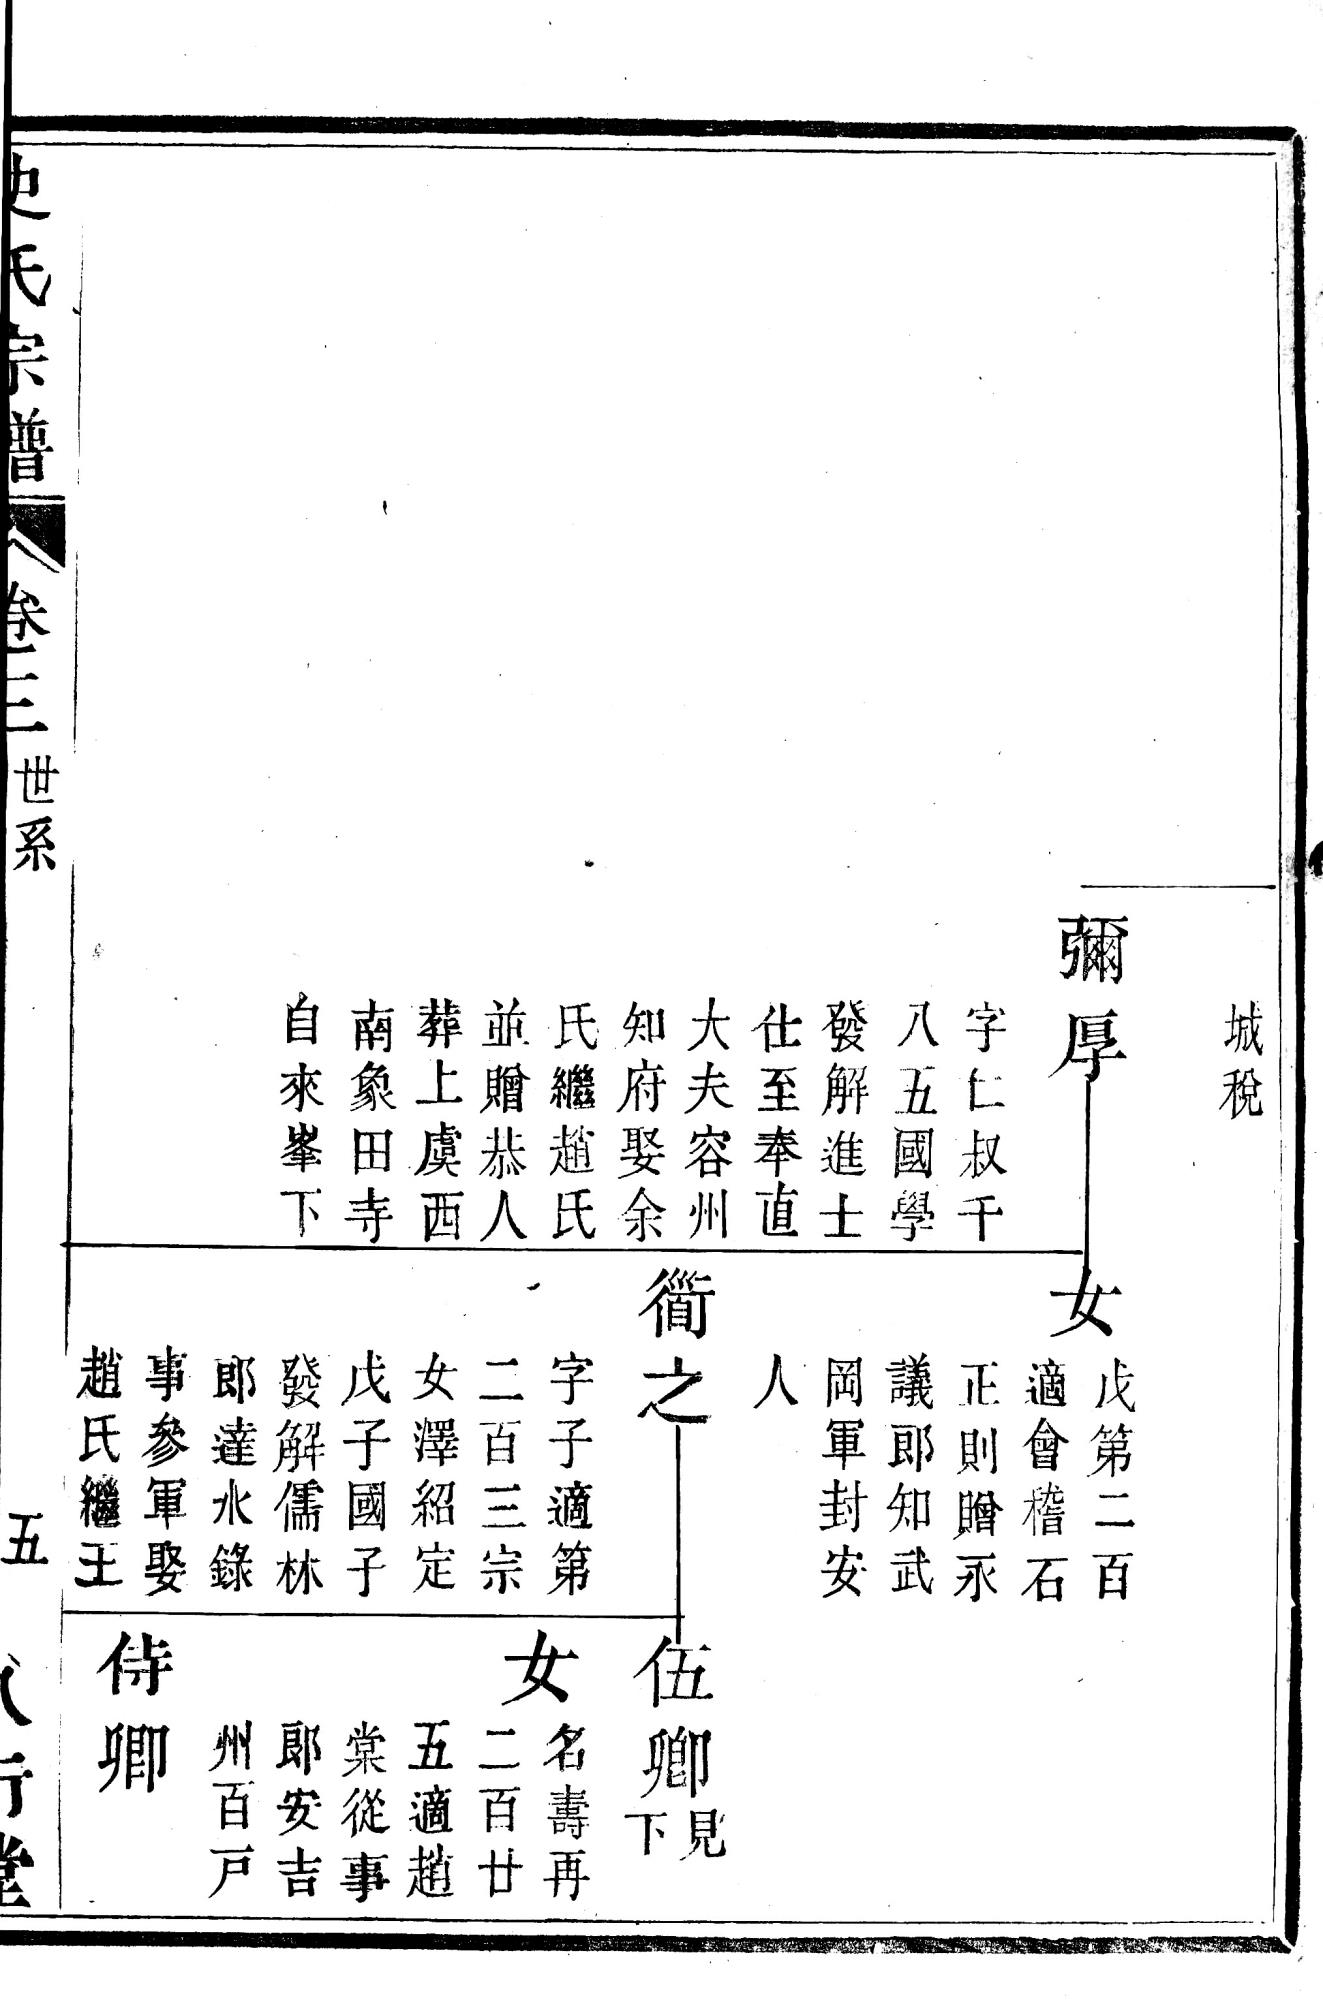 城稅
彌厚
字仁叔千
八五國學
發解進士
仕至奉直
大夫容州
知府娶余
氏繼趙氏
並贈恭人
葬上虞西
南象田寺
自來峯下
女
戊第二百
適會稽石
正則贈永
議郎知武
岡軍封安
人
衜之
字子適第
二百三宗
女澤紹定
戊子國子
發解儒林
郎達水錄
事參軍娶
趙氏繼王
伍卿
見
下
女
名壽再
二百廿
五適趙
棠從事
郎安吉
州百戸
侍卿
史氏宗譜
卷三
世系
五
八行堂